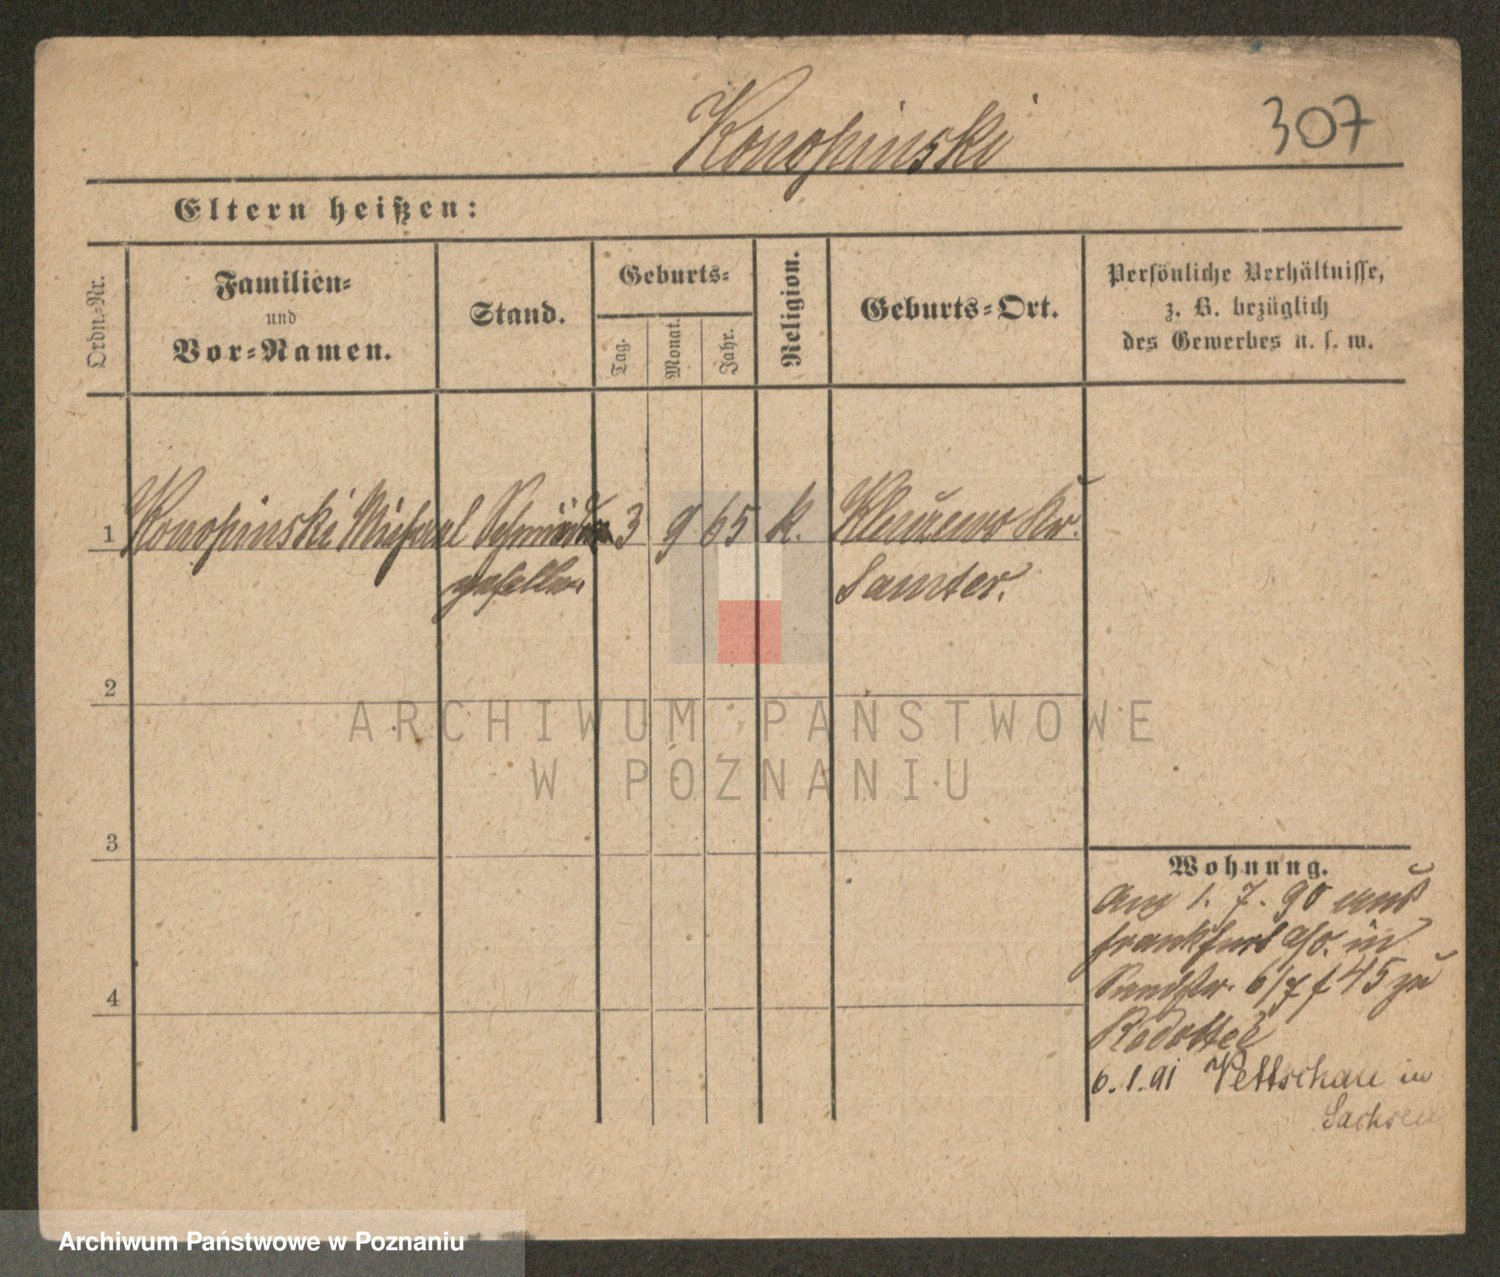 Konopinski
307
Eltern heißen:
Ordn.-Nr.
Familien-
und
Vor-Namen.
Stand.
Geburts-
Tag.
Monat.
Jahr.
Religion.
Geburts-Ort.
Persönliche Verhältnisse,
z. B. bezüglich
des Gewerbes u. s. w.
1 Konopinski Michael 3 9 65 k. Kr.
Samter.
2
3
4
Wohnung.
1. 7. 90 aus
Frankfurt a/o. in
6/7 f 45 zu
6.1.91 Vettschau in
Sachsen
ARCHIWUM PAŃSTWOWE
W POZNANIU
Archiwum Państwowe w Poznaniu